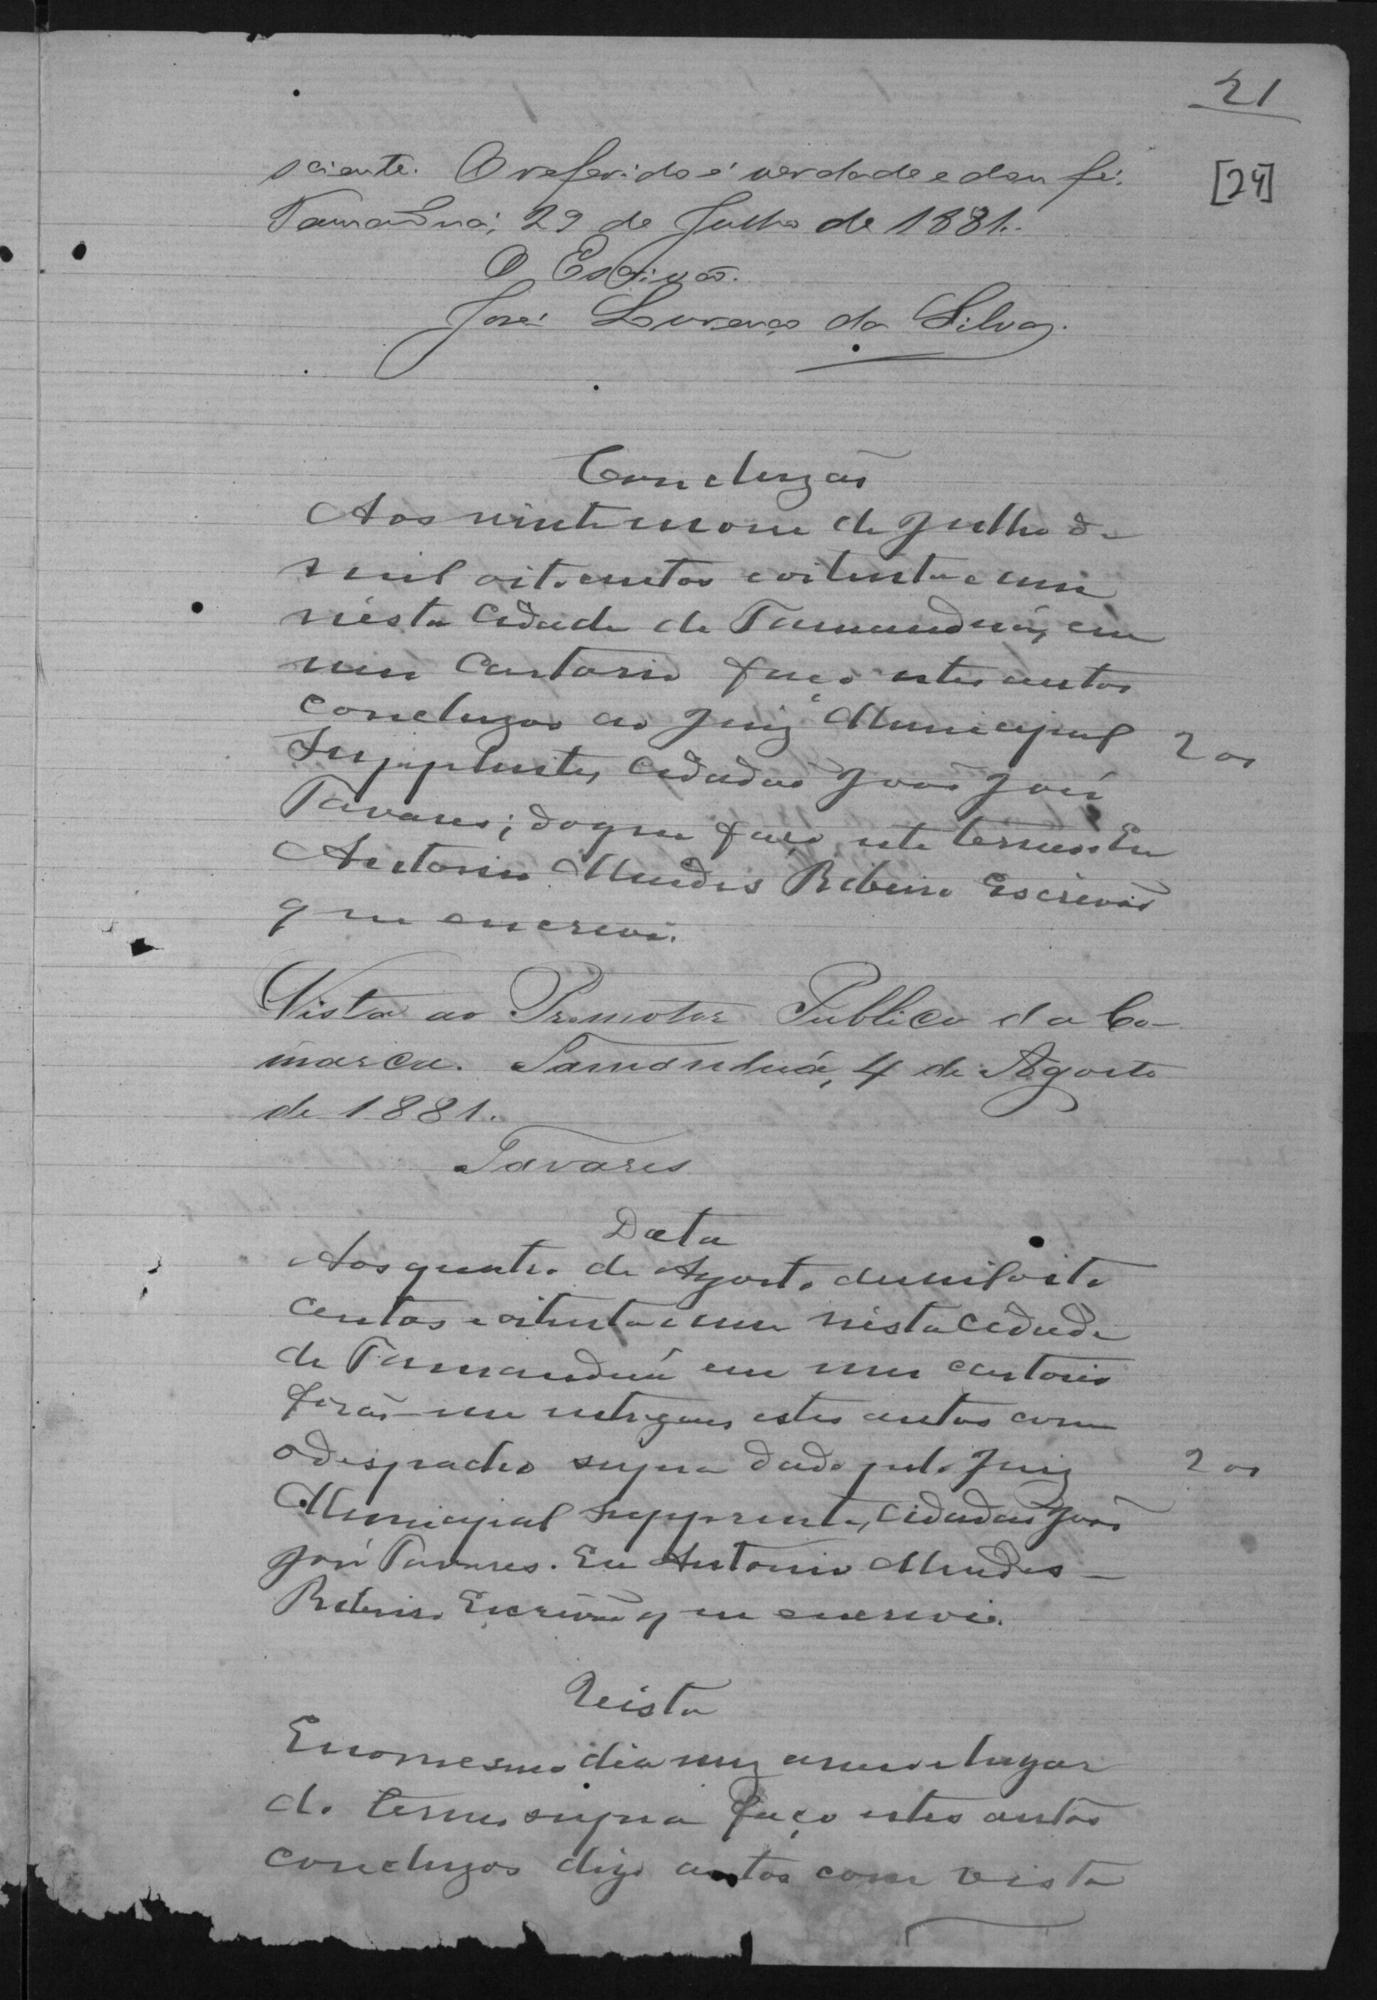 21
[24]
sciente. O referido é verdade e dou fé.
Tamanduá, 29 de Julho de 1881.
O Escrivão.
José Lourenço da Silva.
Concluzão
Aos vinte nove de Julho de
mil oitocentos e oitenta e um
nésta Cidade de Tamanduá, em
meu Cartorio faço estes autos
concluzos ao Juiz Municipal
200
Supplente, Cidadão João José
Tavares; do que faço este termo. Eu
Antonio Mendes Ribeiro Escrivão
que escrevi.
Vista ao Promotor Publico da Co-
marca. Tamanduá, 4 de Agosto
de 1881.
Tavares
Data
Aos quatro de Agosto de mil oito
centos e oitenta e um nésta Cidade
de Tamanduá em meu cartorio
forão-me entregues estes autos com
o despacho supra dado pelo Juiz
200
Municipal Supprente, Cidadão João
José Tavares. Eu Antonio Mendes
Ribeiro Escrivão que escrevi.
Vista
E no mesmo dia mez anno e lugar
do termo supra faço estes autos
concluzos digo autos com vista